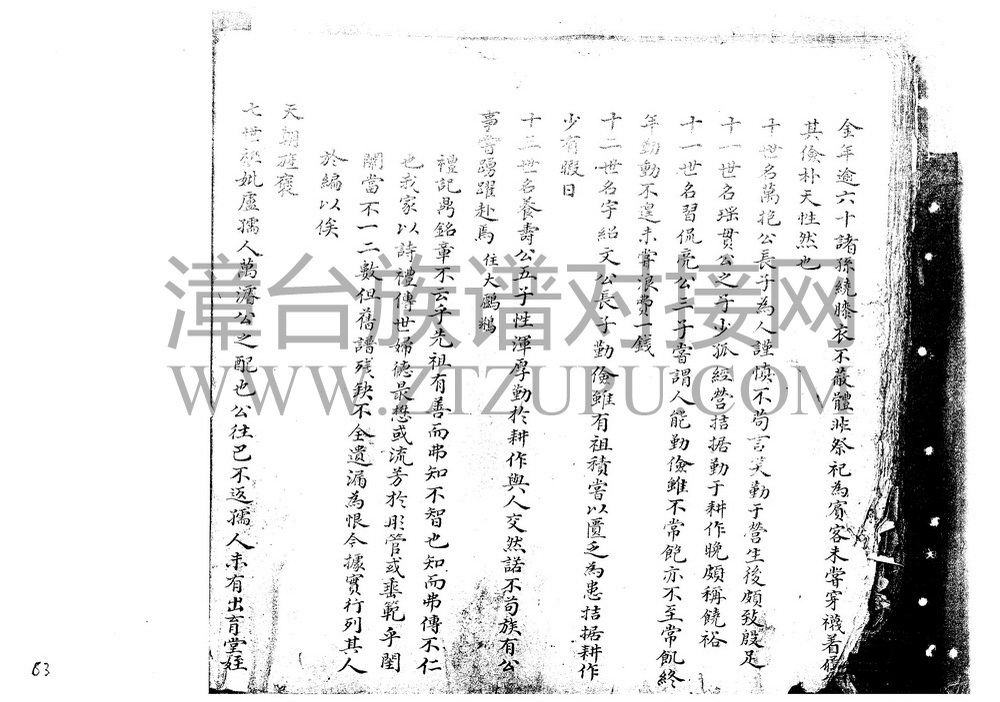 金年逾六十諸孫繞膝衣不蔽體非祭祀為賓客未嘗穿襪着
其儉朴天性然也
十世名萬抱公長子為人謹慎不苟言笑勤于營生後頗致殷足
十一世名琛貫公之子少孤經營拮据勤于耕作晚頗稱饒裕
十一世名習侃亮公二子嘗謂人能勤儉雖不常飽亦不至常飢終
年勤動不遑未嘗浪費一錢
十二世名字紹文公長子勤儉雖有祖積嘗以匱乏為患拮据耕作
少有暇日
十三世名養壽公五子性渾厚勤於耕作與人交然諾不苟族有公
事嘗踴躍赴焉 住大鸸鹋
禮記鼎銘章不云乎先祖有善而弗知不智也知而弗傳不仁
也我家以詩禮傳世婦德最懋或流芳於彤管或垂範乎閨
闈當不一二數但舊譜殘缺不全遺漏為恨今據實行列其人
於編以俟
天朝旌褒
七世祖妣盧孺人萬濬公之配也公往巴不返孺人未有出育堂姪
漳台族谱对接网
WWW.ZTZUPU.COM
63